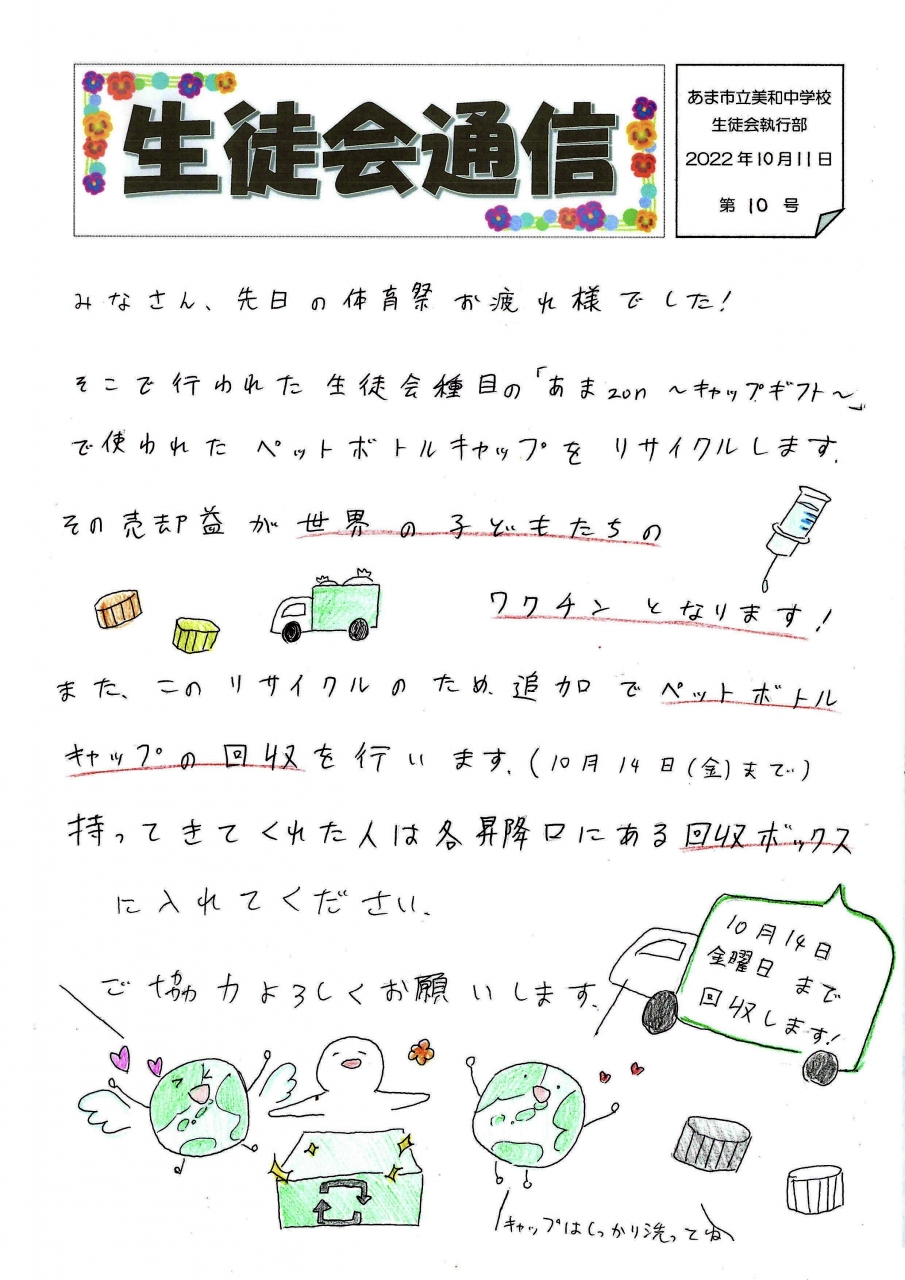 生徒会通信
あま市立美和中学校
生徒会執行部
2022年10月11日
第 10 号
みなさん、先日の体育祭お疲れ様でした!
そこで行われた生徒会種目の「あまzon ～キャップギフト～」
で使われたペットボトルキャップをリサイクルします.
その売却益が世界の子どもたちの
ワクチンとなります!
また、このリサイクルのため、追加でペットボトル
キャップの回収を行います.(10月14日(金)まで)
持ってきてくれた人は各昇降口にある回収ボックス
に入れてください.
ご協力よろしくお願いします.
10月14日
金曜日まで
回収します!
キャップはしっかり洗ってね